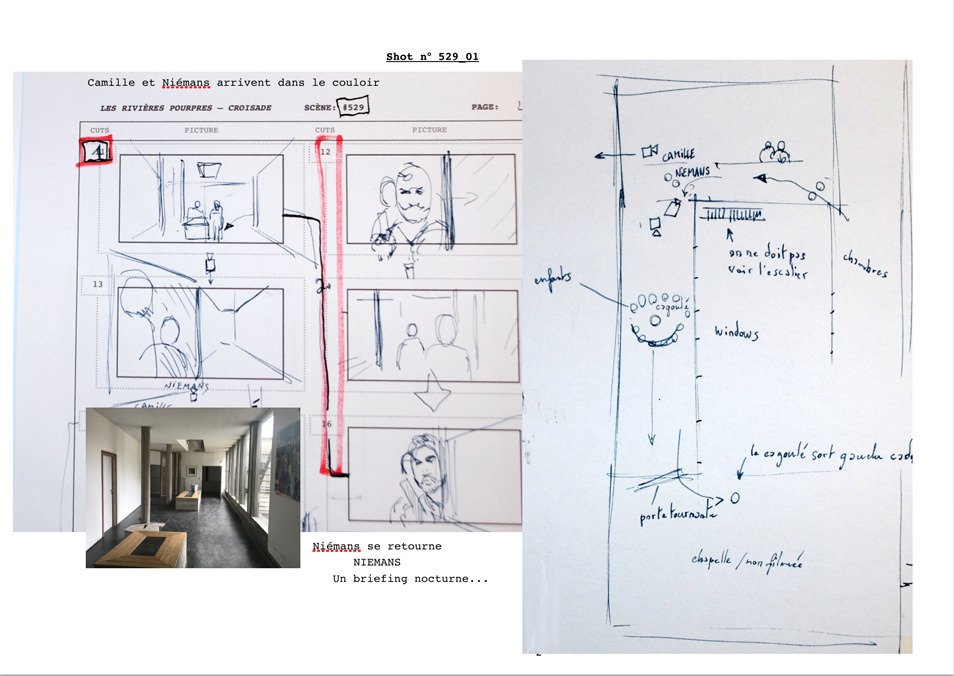 Shot n° 529_01
Camille et Niémans arrivent dans le couloir
LES RIVIÈRES POURPRES – CROISADE SCÈNE: #529 PAGE:
CUTS PICTURE CUTS PICTURE
12
13
NIEMANS
CAMILLE
16
Niémans se retourne
NIEMANS
Un briefing nocturne...
CAMILLE
NIEMANS
on ne doit pas
voir l'escalier
chambres
enfants
cagoulé
windows
le cagoulé sort gauche
porte tournante
chapelle / non filmée